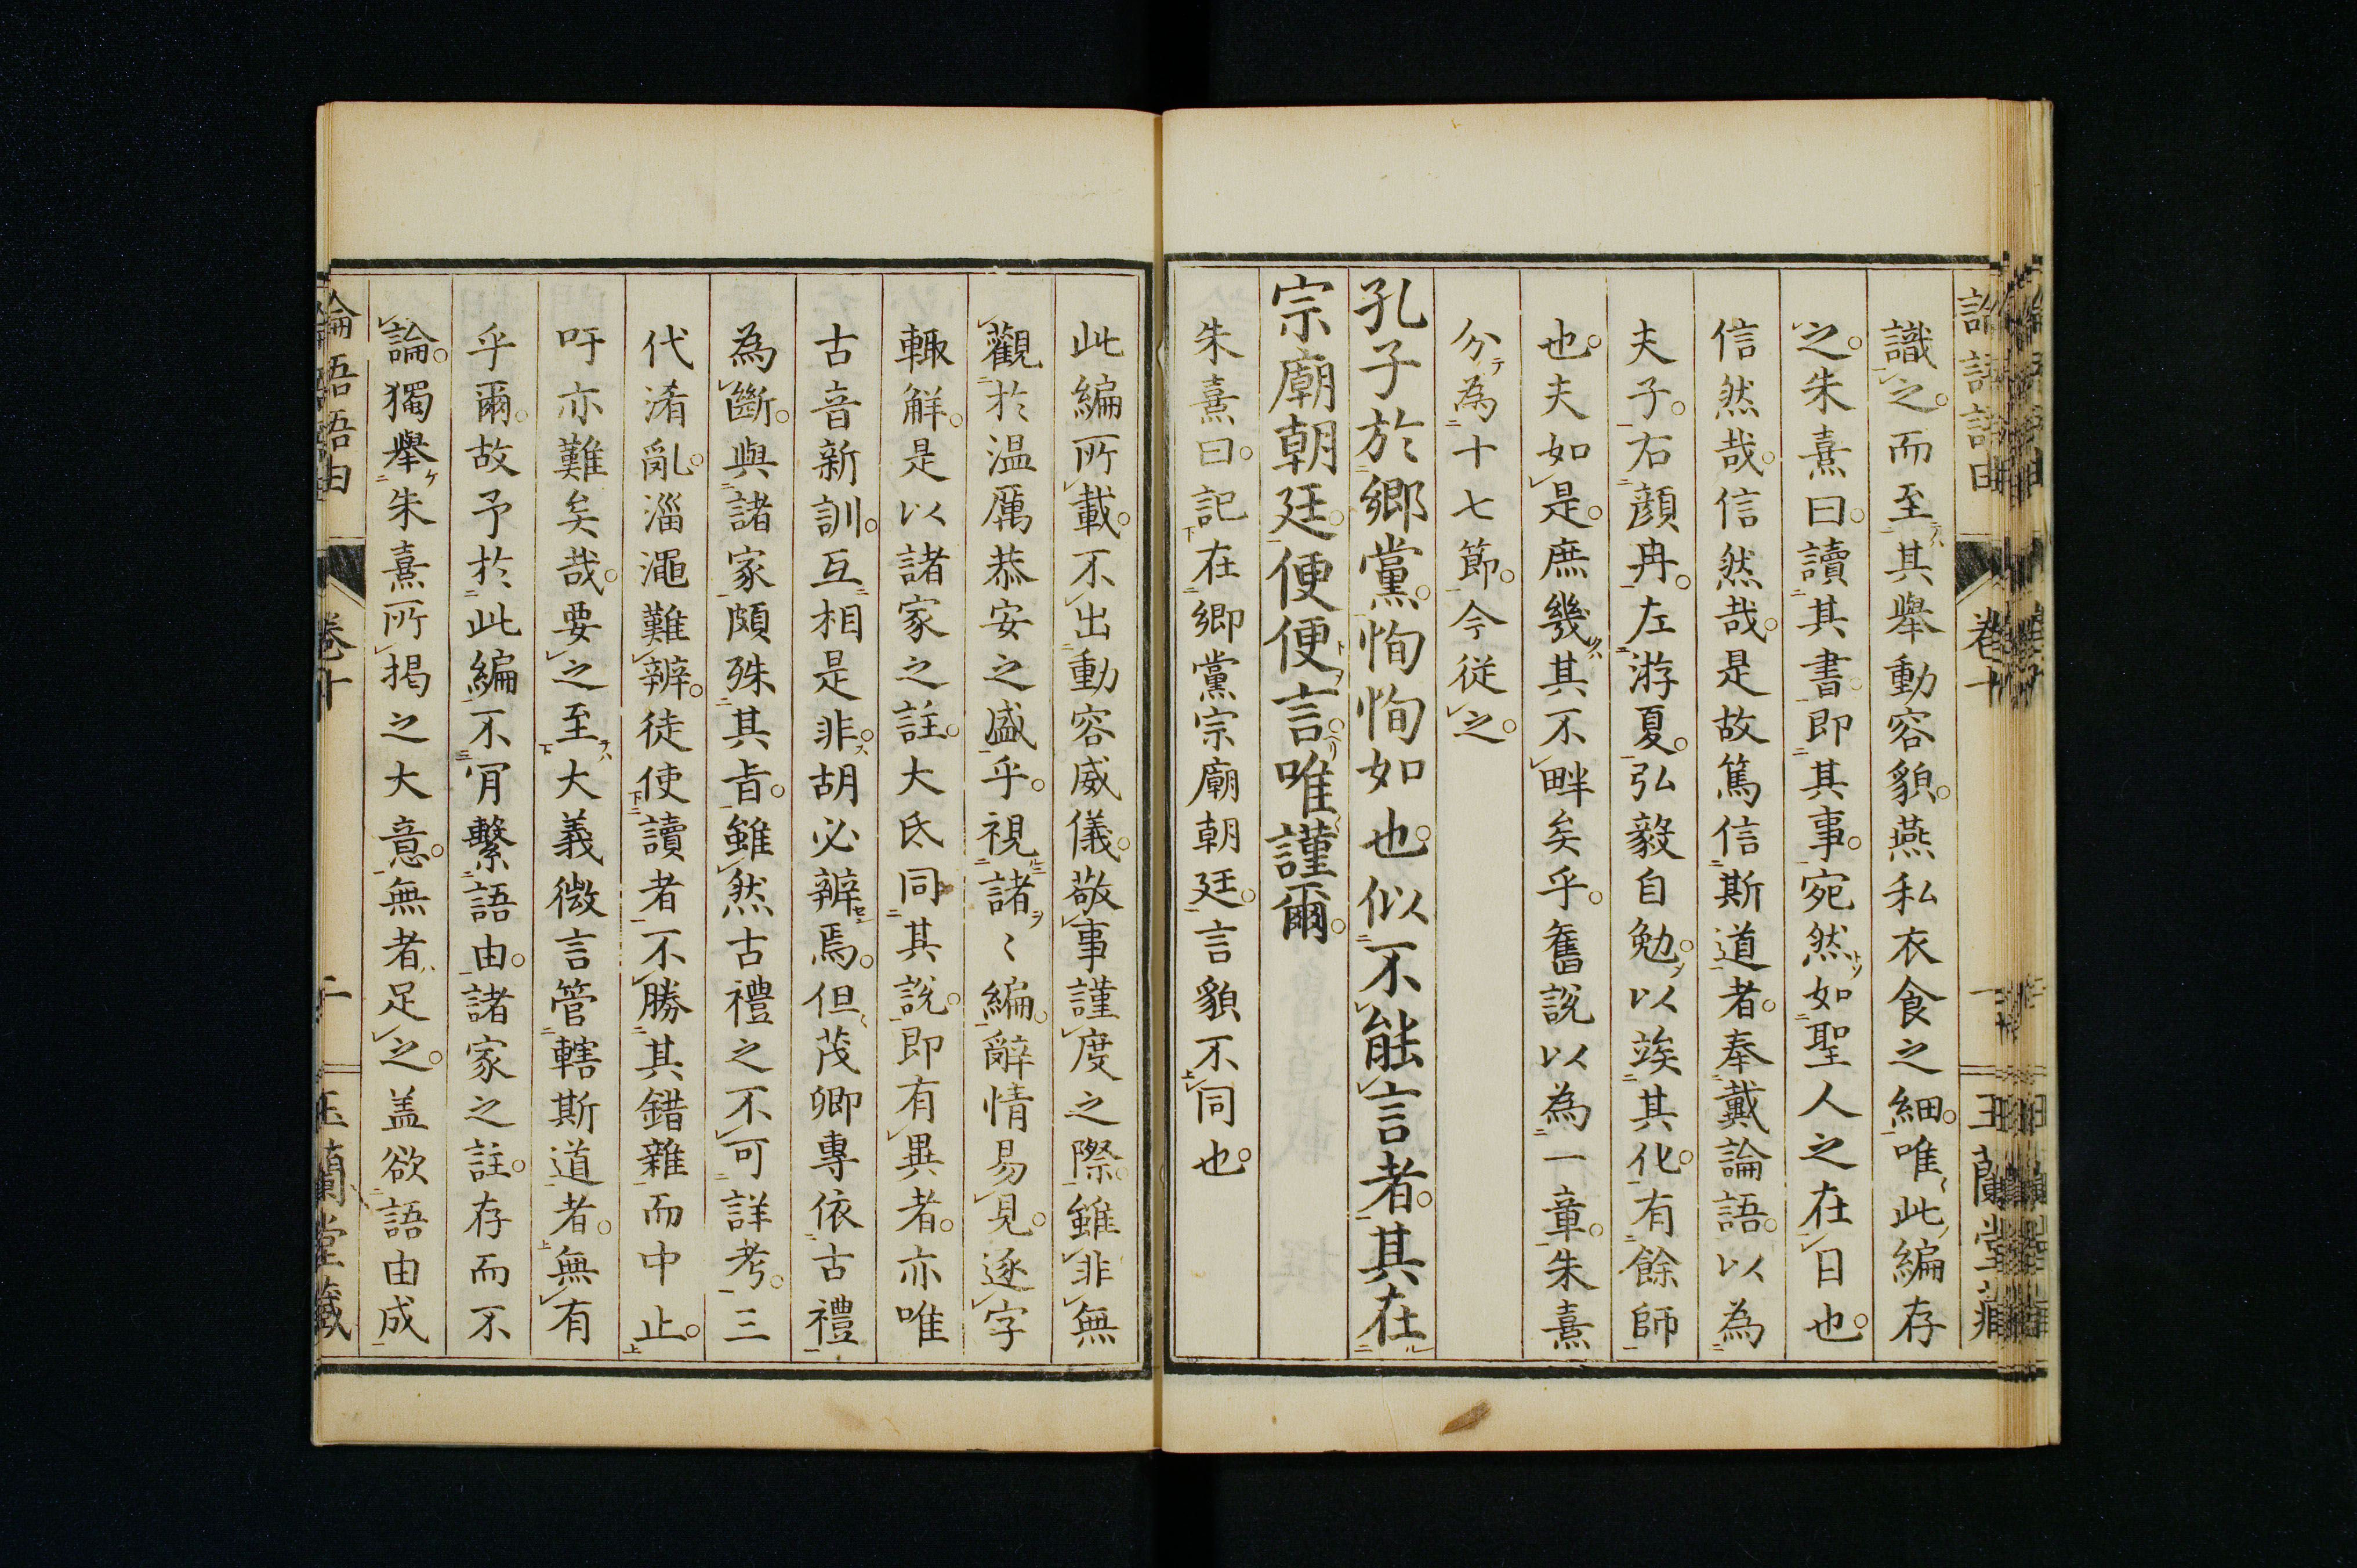 識之。而至其舉動容貌。燕私衣食之細。唯此編存
之。朱熹曰。讀其書。即其事。宛然如聖人之在目也。
信然哉。信然哉。是故篤信斯道者。奉戴論語。以為
夫子。右顔冉。左游夏。弘毅自勉。以竢其化。有餘師
也。夫如是。庶幾其不畔矣乎。舊說以為一章。朱熹
分為十七節。今従之。
孔子於鄉黨。恂恂如也。似不能言者。其在
宗廟朝廷。便便言。唯謹爾。
朱熹曰。記在鄉黨宗廟朝廷。言貌不同也。
此編所載。不出動容威儀。敬事謹度之際。雖非無
觀於温厲恭安之盛乎。視諸〻編。辭情易見。逐字
輙解。是以諸家之註。大氐同其說。即有異者。亦唯
古音新訓。互相是非。胡必辨焉。但茂卿專依古禮
為斷。與諸家頗殊其旨。雖然古禮之不可詳考。三
代淆亂。淄澠難辨。徒使讀者不勝其錯雜而中止。
吁亦難矣哉。要之至大義微言管轄斯道者。無有
乎爾。故予於此編不肎繫語由。諸家之註。存而不
論。獨舉朱熹所揭之大意。無者足之。盖欲語由成
論語語由 卷十 玉蘭堂藏